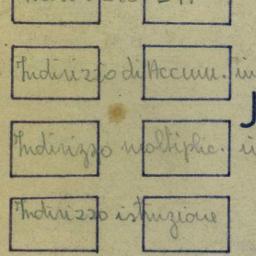 Indirizzo di Accum. in
Indirizzo moltiplic. i
Indirizzo istruzione